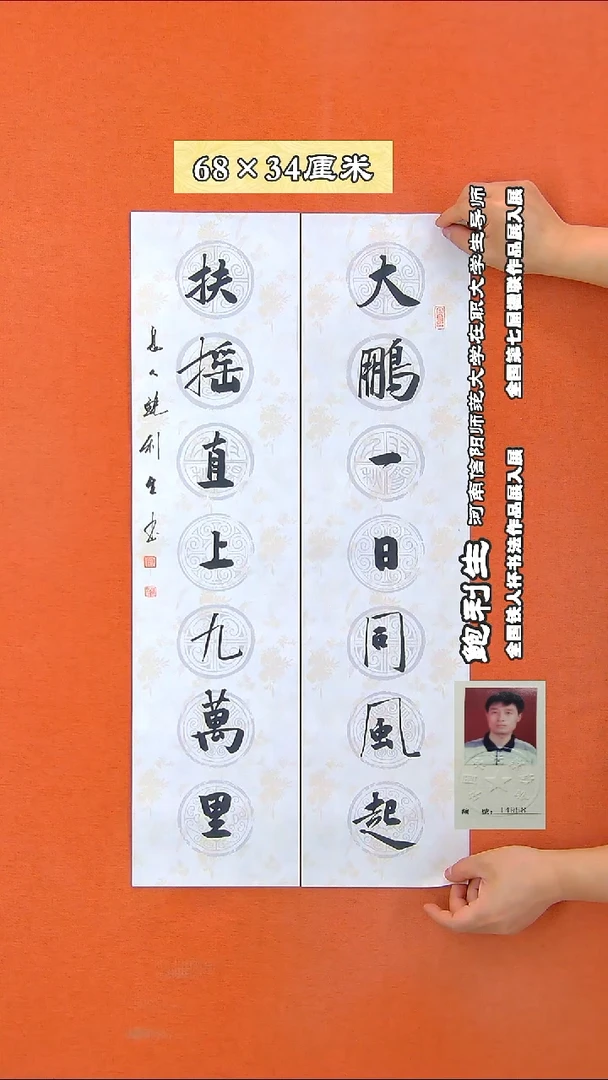 68×34厘米
大鹏一日同風起
扶摇直上九萬里
鲍利生书
鲍利生 河南信阳师范大学在职大学生导师
全国铁人杯书法作品展入展 全国第七届楹联作品展入展